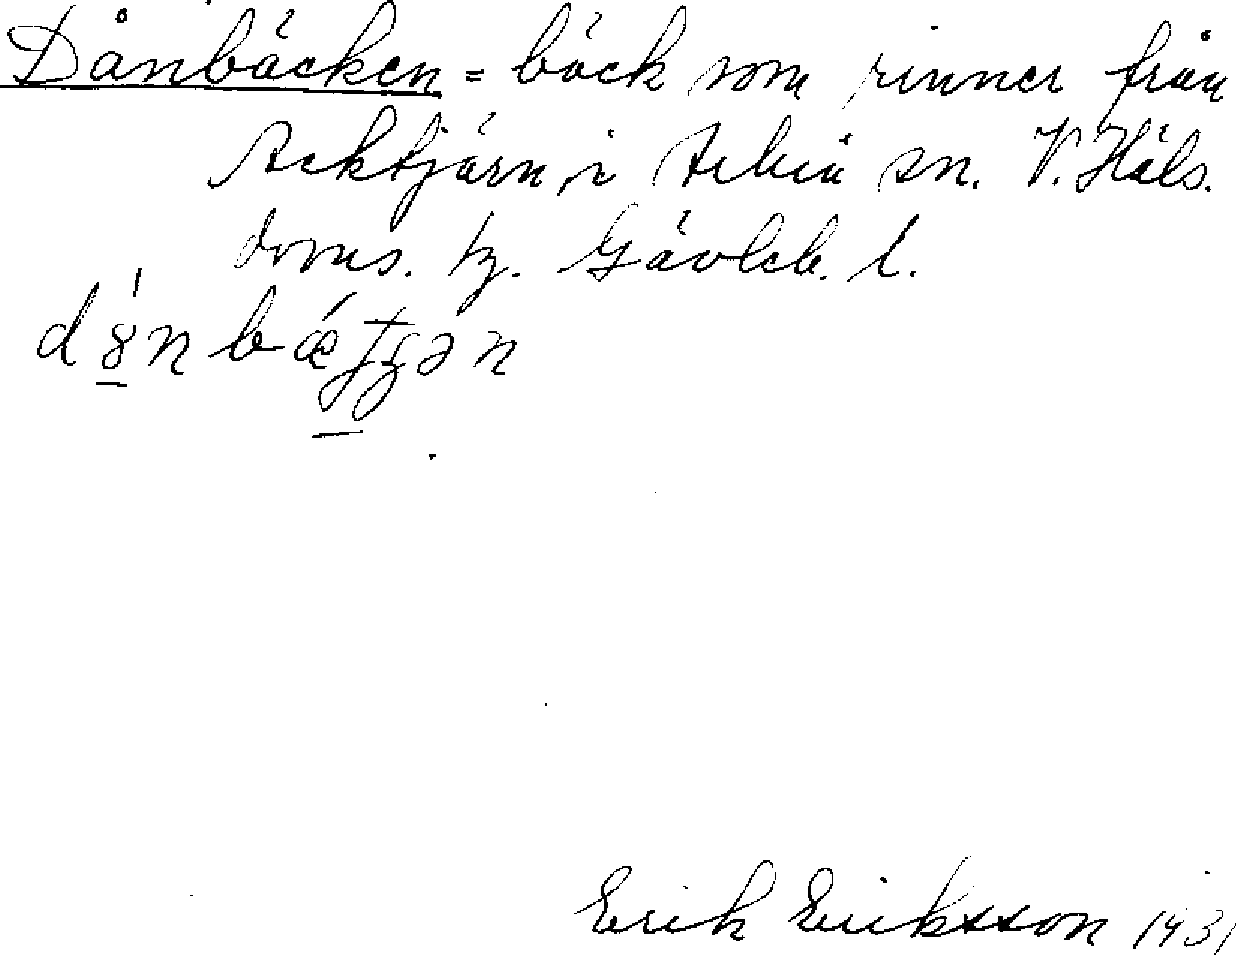 Dånbäcken = bäck som rinner från
Acktjärn i Arbrå sn. V. Häls.
doms. tz. Gävleb. l.
Erik Eriksson 1931